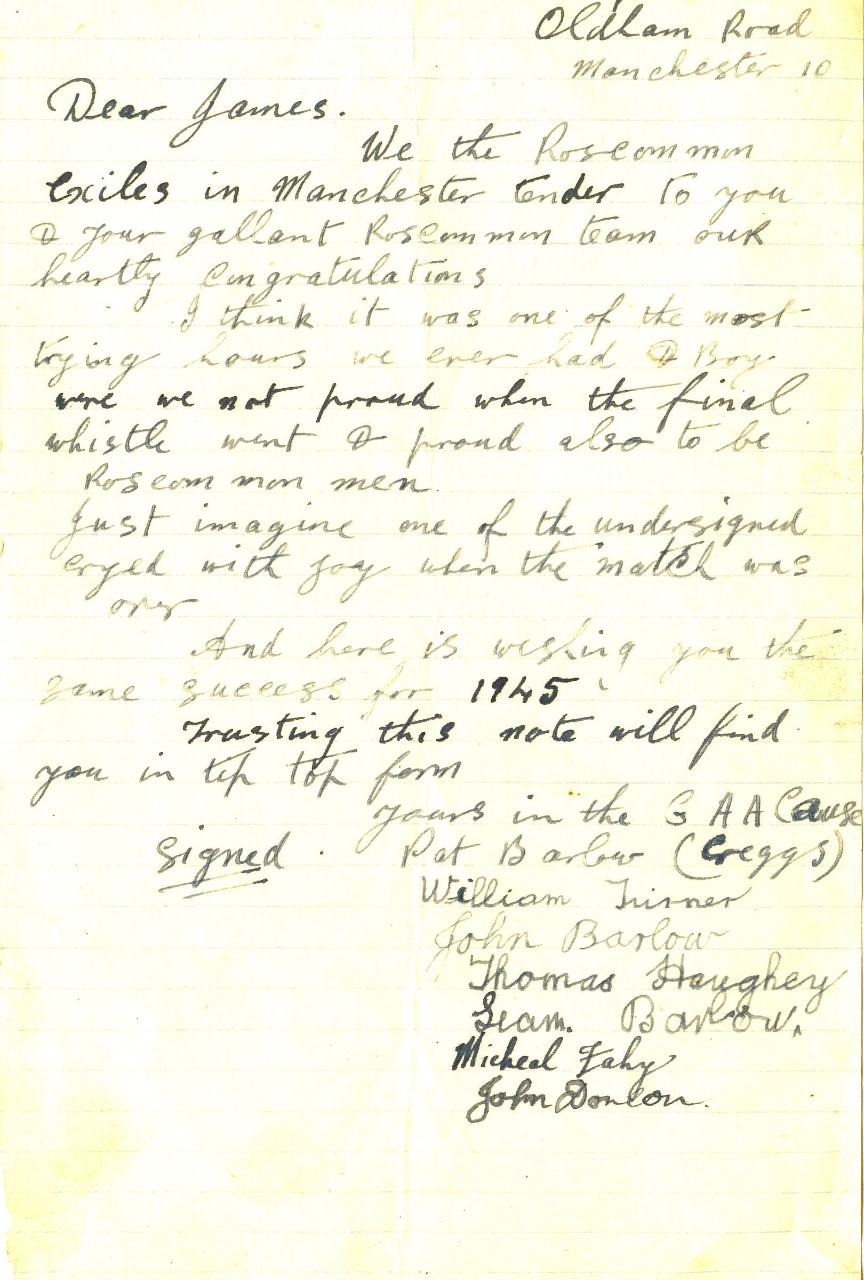 Oldham Road
Manchester 10
Dear James.
We the Roscommon
Exiles in Manchester tender to you
& your gallant Roscommon team our
heartly congratulations
I think it was one of the most
trying hours we ever had & Boy
were we not proud when the final
whistle went & proud also to be
Roscommon men.
Just imagine one of the undersigned
cryed with joy when the match was
over
And here is wishing you the
same success for 1945
Trusting this note will find
you in tip top form
yours in the G A A Cause
Signed . Pat Barlow (Creggs)
William Turner
John Barlow
Thomas Haughey
Seam. Barlow.
Micheal Fahy
John Donlon.